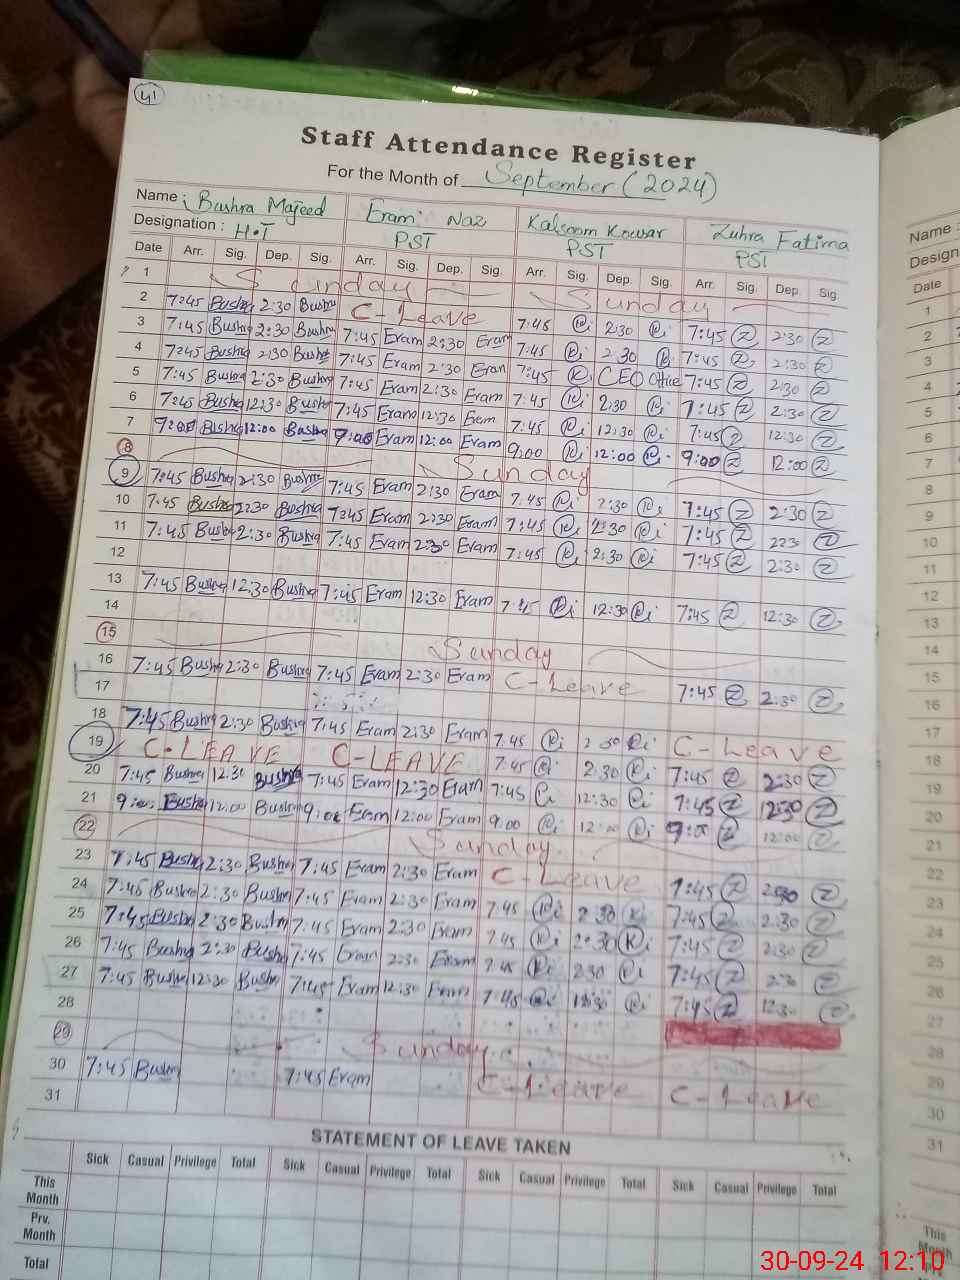 41
Staff Attendance Register
For the Month of September (2024)
Name : Bushra Majeed Eram Naz Kalsoom Kowsar Zuhra Fatima Name :
Designation : H.T PST PST PST
Date Arr. Sig. Dep. Sig. Arr. Sig. Dep. Sig. Arr. Sig. Dep. Sig. Arr. Sig. Dep. Sig. Date
1 Sunday Sunday 1
2 7:45 Bushra 2:30 Bushra C-Leave 7:45 Ri 2:30 Ri 7:45 Z 2:30 Z 2
3 7:45 Bushra 2:30 Bushra 7:45 Eram 2:30 Eram 7:45 Ri 2 30 R 7:45 Z 2:30 Z 3
4 7:45 Bushra 2:30 Bushra 7:45 Eram 2:30 Eram 7:45 R CEO Office 7:45 Z 2:30 Z 4
5 7:45 Bushra 2:30 Bushra 7:45 Eram 2:30 Eram 7:45 Ri 2:30 Ri 7:45 Z 2:30 Z 5
6 7:45 Bushra 12:30 Bushra 7:45 Eram 12:30 Eram 7:45 Ri 12:30 Ri 7:45 Z 12:30 Z 6
7 9:00 Bushra 12:00 Bushra 9:00 Eram 12:00 Eram 9:00 Ri 12:00 Ri 9:00 Z 12:00 Z 7
8 Sunday 8
9 7:45 Bushra 2:30 Bushra 7:45 Eram 2:30 Eram 7:45 Ri 2:30 Ri 7:45 Z 2:30 Z 9
10 7:45 Bushra 2:30 Bushra 7:45 Eram 2:30 Eram 7:45 Ri 2:30 Ri 7:45 Z 2:30 Z 10
11 7:45 Bushra 2:30 Bushra 7:45 Eram 2:30 Eram 7:45 Ri 2:30 Ri 7:45 Z 2:30 Z 11
12 12
13 7:45 Bushra 12:30 Bushra 7:45 Eram 12:30 Eram 7:45 Ri 12:30 Ri 7:45 Z 12:30 Z 13
14 14
15 Sunday 15
16 7:45 Bushra 2:30 Bushra 7:45 Eram 2:30 Eram C-Leave 7:45 Z 2:30 Z 16
17 17
18 7:45 Bushra 2:30 Bushra 7:45 Eram 2:30 Eram 7:45 Ri 2 30 Ri C-Leave 18
19 C-LEAVE C-LEAVE 7:45 Ri 2:30 Ri 7:45 Z 2:30 Z 19
20 7:45 Bushra 12:30 Bushra 7:45 Eram 12:30 Eram 7:45 Ri 12:30 Ri 7:45 Z 12:30 Z 20
21 9:00 Bushra 12:00 Bushra 9:00 Eram 12:00 Eram 9:00 Ri 12:00 Ri 9:00 Z 12:00 Z 21
22 Sunday 22
23 7:45 Bushra 2:30 Bushra 7:45 Eram 2:30 Eram C-Leave 7:45 Z 2:30 Z 23
24 7:45 Bushra 2:30 Bushra 7:45 Eram 2:30 Eram 7:45 Ri 2:30 R 7:45 Z 2:30 Z 24
25 7:45 Bushra 2:30 Bushra 7:45 Eram 2:30 Eram 7:45 Ri 2:30 Ri 7:45 Z 2:30 Z 25
26 7:45 Bushra 2:30 Bushra 7:45 Eram 2:30 Eram 7:45 Ri 2:30 Ri 7:45 Z 2:30 Z 26
27 7:45 Bushra 12:30 Bushra 7:45 Eram 12:30 Eram 7:45 Ri 12:30 Ri 7:45 Z 12:30 Z 27
28 28
29 Sunday 29
30 7:45 Bushra 7:45 Eram C-Leave C-Leave 30
31 31
STATEMENT OF LEAVE TAKEN
Sick Casual Privilege Total Sick Casual Privilege Total Sick Casual Privilege Total Sick Casual Privilege Total
This Month
Prv. Month
Total
30-09-24 12:10